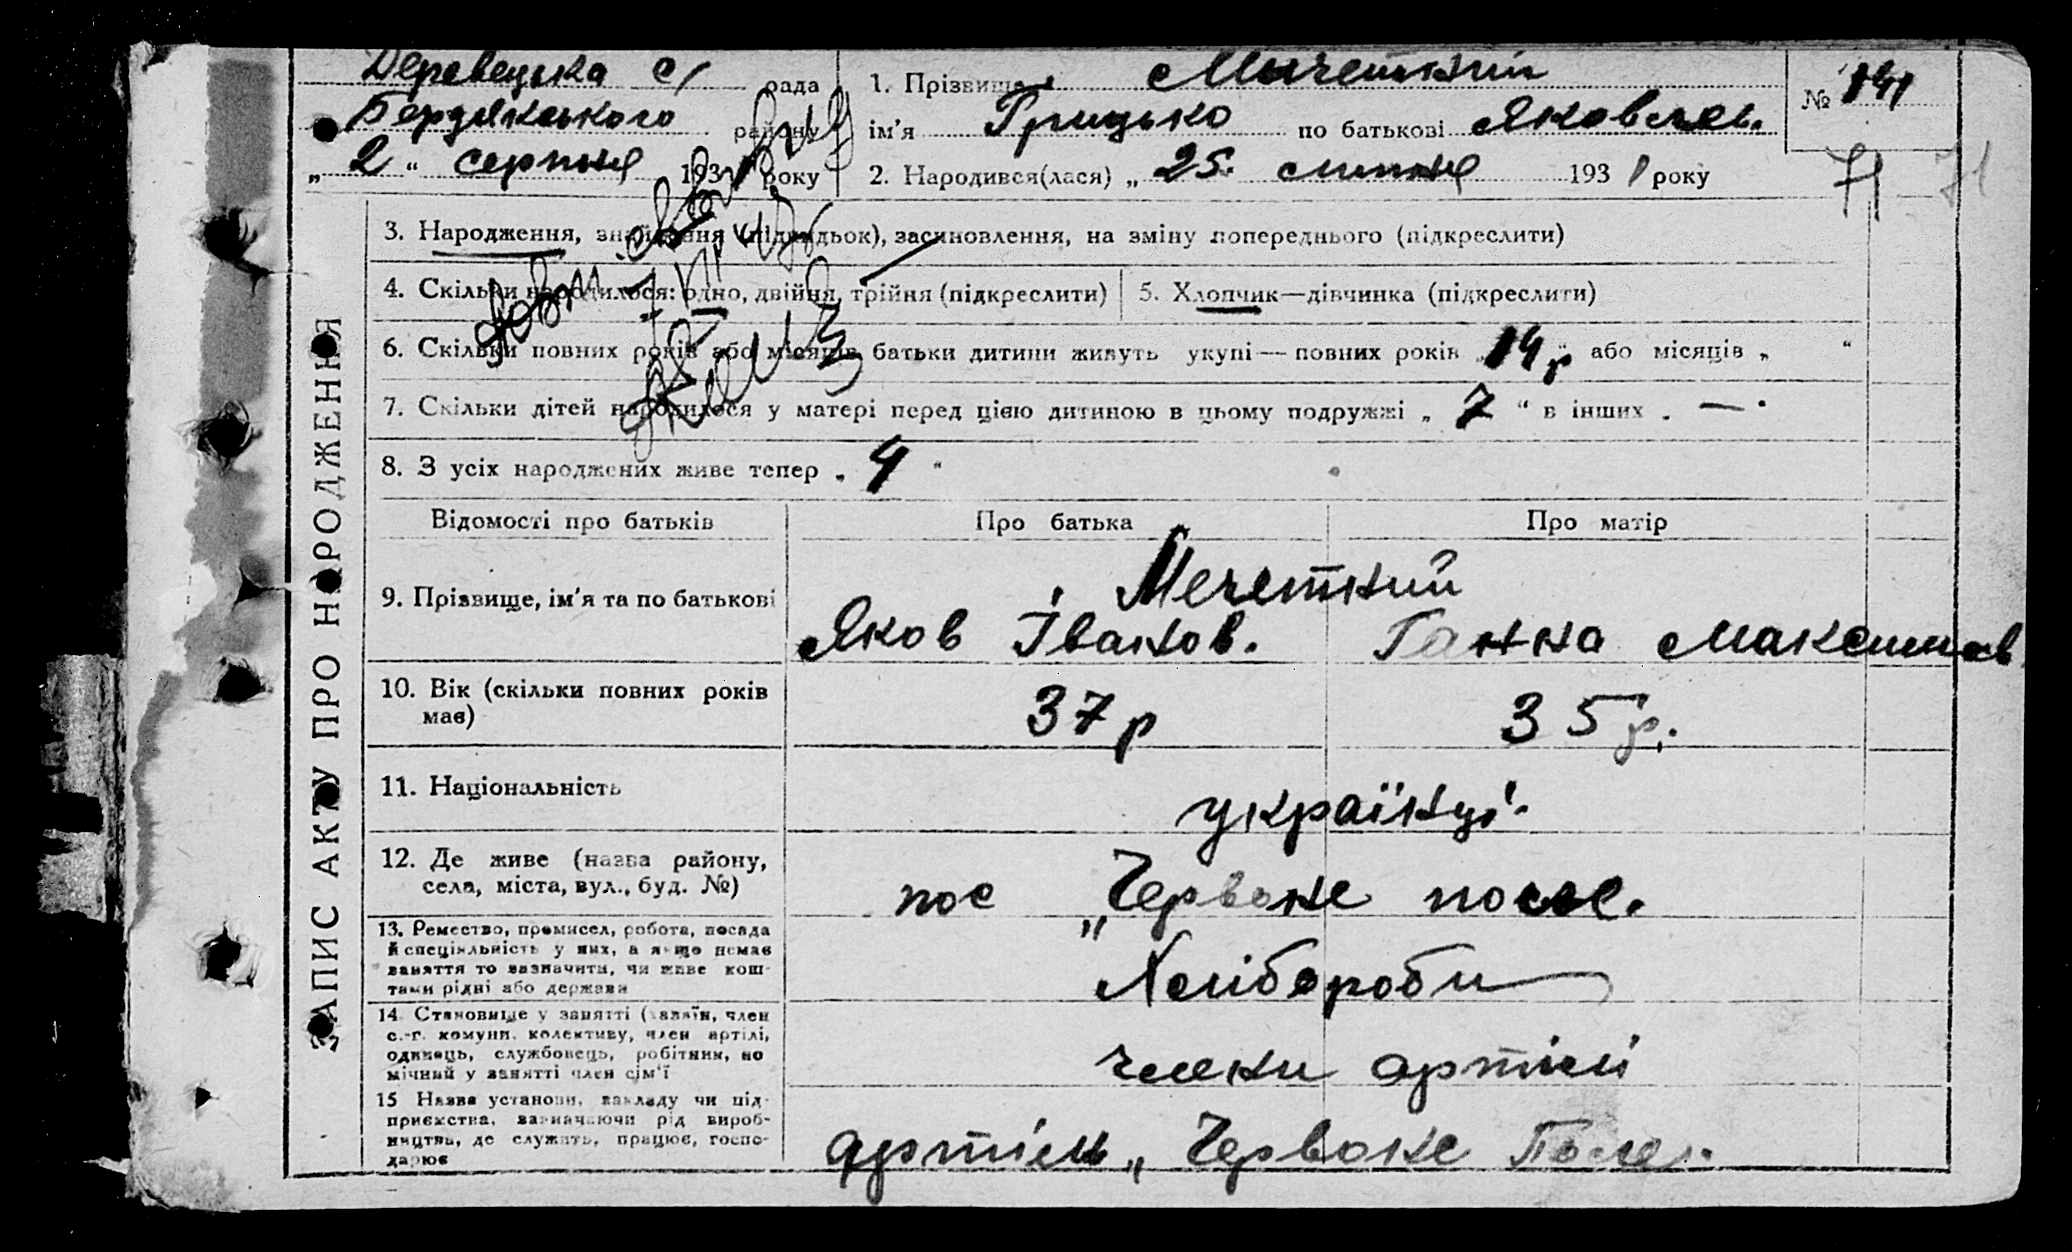 Деревецька с/ рада
Бердянського району
„ 2 “ серпня 1931 року
1. Прізвище Мычеткий
ім'я Грицько по батькові Яковлев.
2. Народився(лася) „ 25. липня 1931 року
№ 141
71 71
ЗАПИС АКТУ ПРО НАРОДЖЕННЯ
3. Народження, знайдення (підкидьок), засиновлення, на зміну попереднього (підкреслити)
4. Скільки народилося: одно, двійня, трійня (підкреслити)
5. Хлопчик—дівчинка (підкреслити)
6. Скільки повних років або місяців батьки дитини живуть укупі — повних років „ 14 р “ або місяців „ “
7. Скільки дітей народилося у матері перед цією дитиною в цьому подружжі „ 7 “ в інших „ —
8. З усіх народжених живе тепер „ 4 “
Відомості про батьків
Про батька
Про матір
9. Прізвище, ім'я та по батькові
Мечеткий
Яков Іванов. Ганна Максимов
10. Вік (скільки повних років має)
37 р
35 р.
11. Національність
українці.
12. Де живе (назва району, села, міста, вул., буд. №)
пос „Червоне поле.
13. Ремество, промисел, робота, посада й спеціяльність у них, а якщо немає заняття то зазначити, чи живе коштами рідні або держави
Хлібороби
14. Становище у занятті (хазяїн, член с.-г. комуни, колективу, член артілі, одинець, службовець, робітник, помічний у занятті член сім'ї
члени артілі
15 Назва установи, закладу чи підприємства, зазначаючи рід виробництва, де служить, працює, господарює
артіль „Червоне Поле.